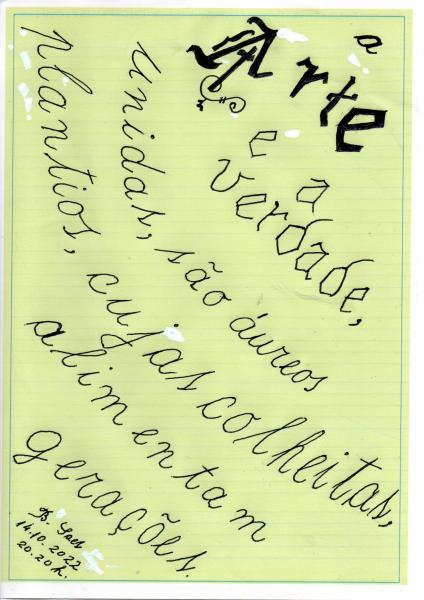 a Arte
e a
verdade,
unidas, são áureos
plantios, cujas colheitas,
alimentam
gerações.
B.
14.10.2022
20.20h.